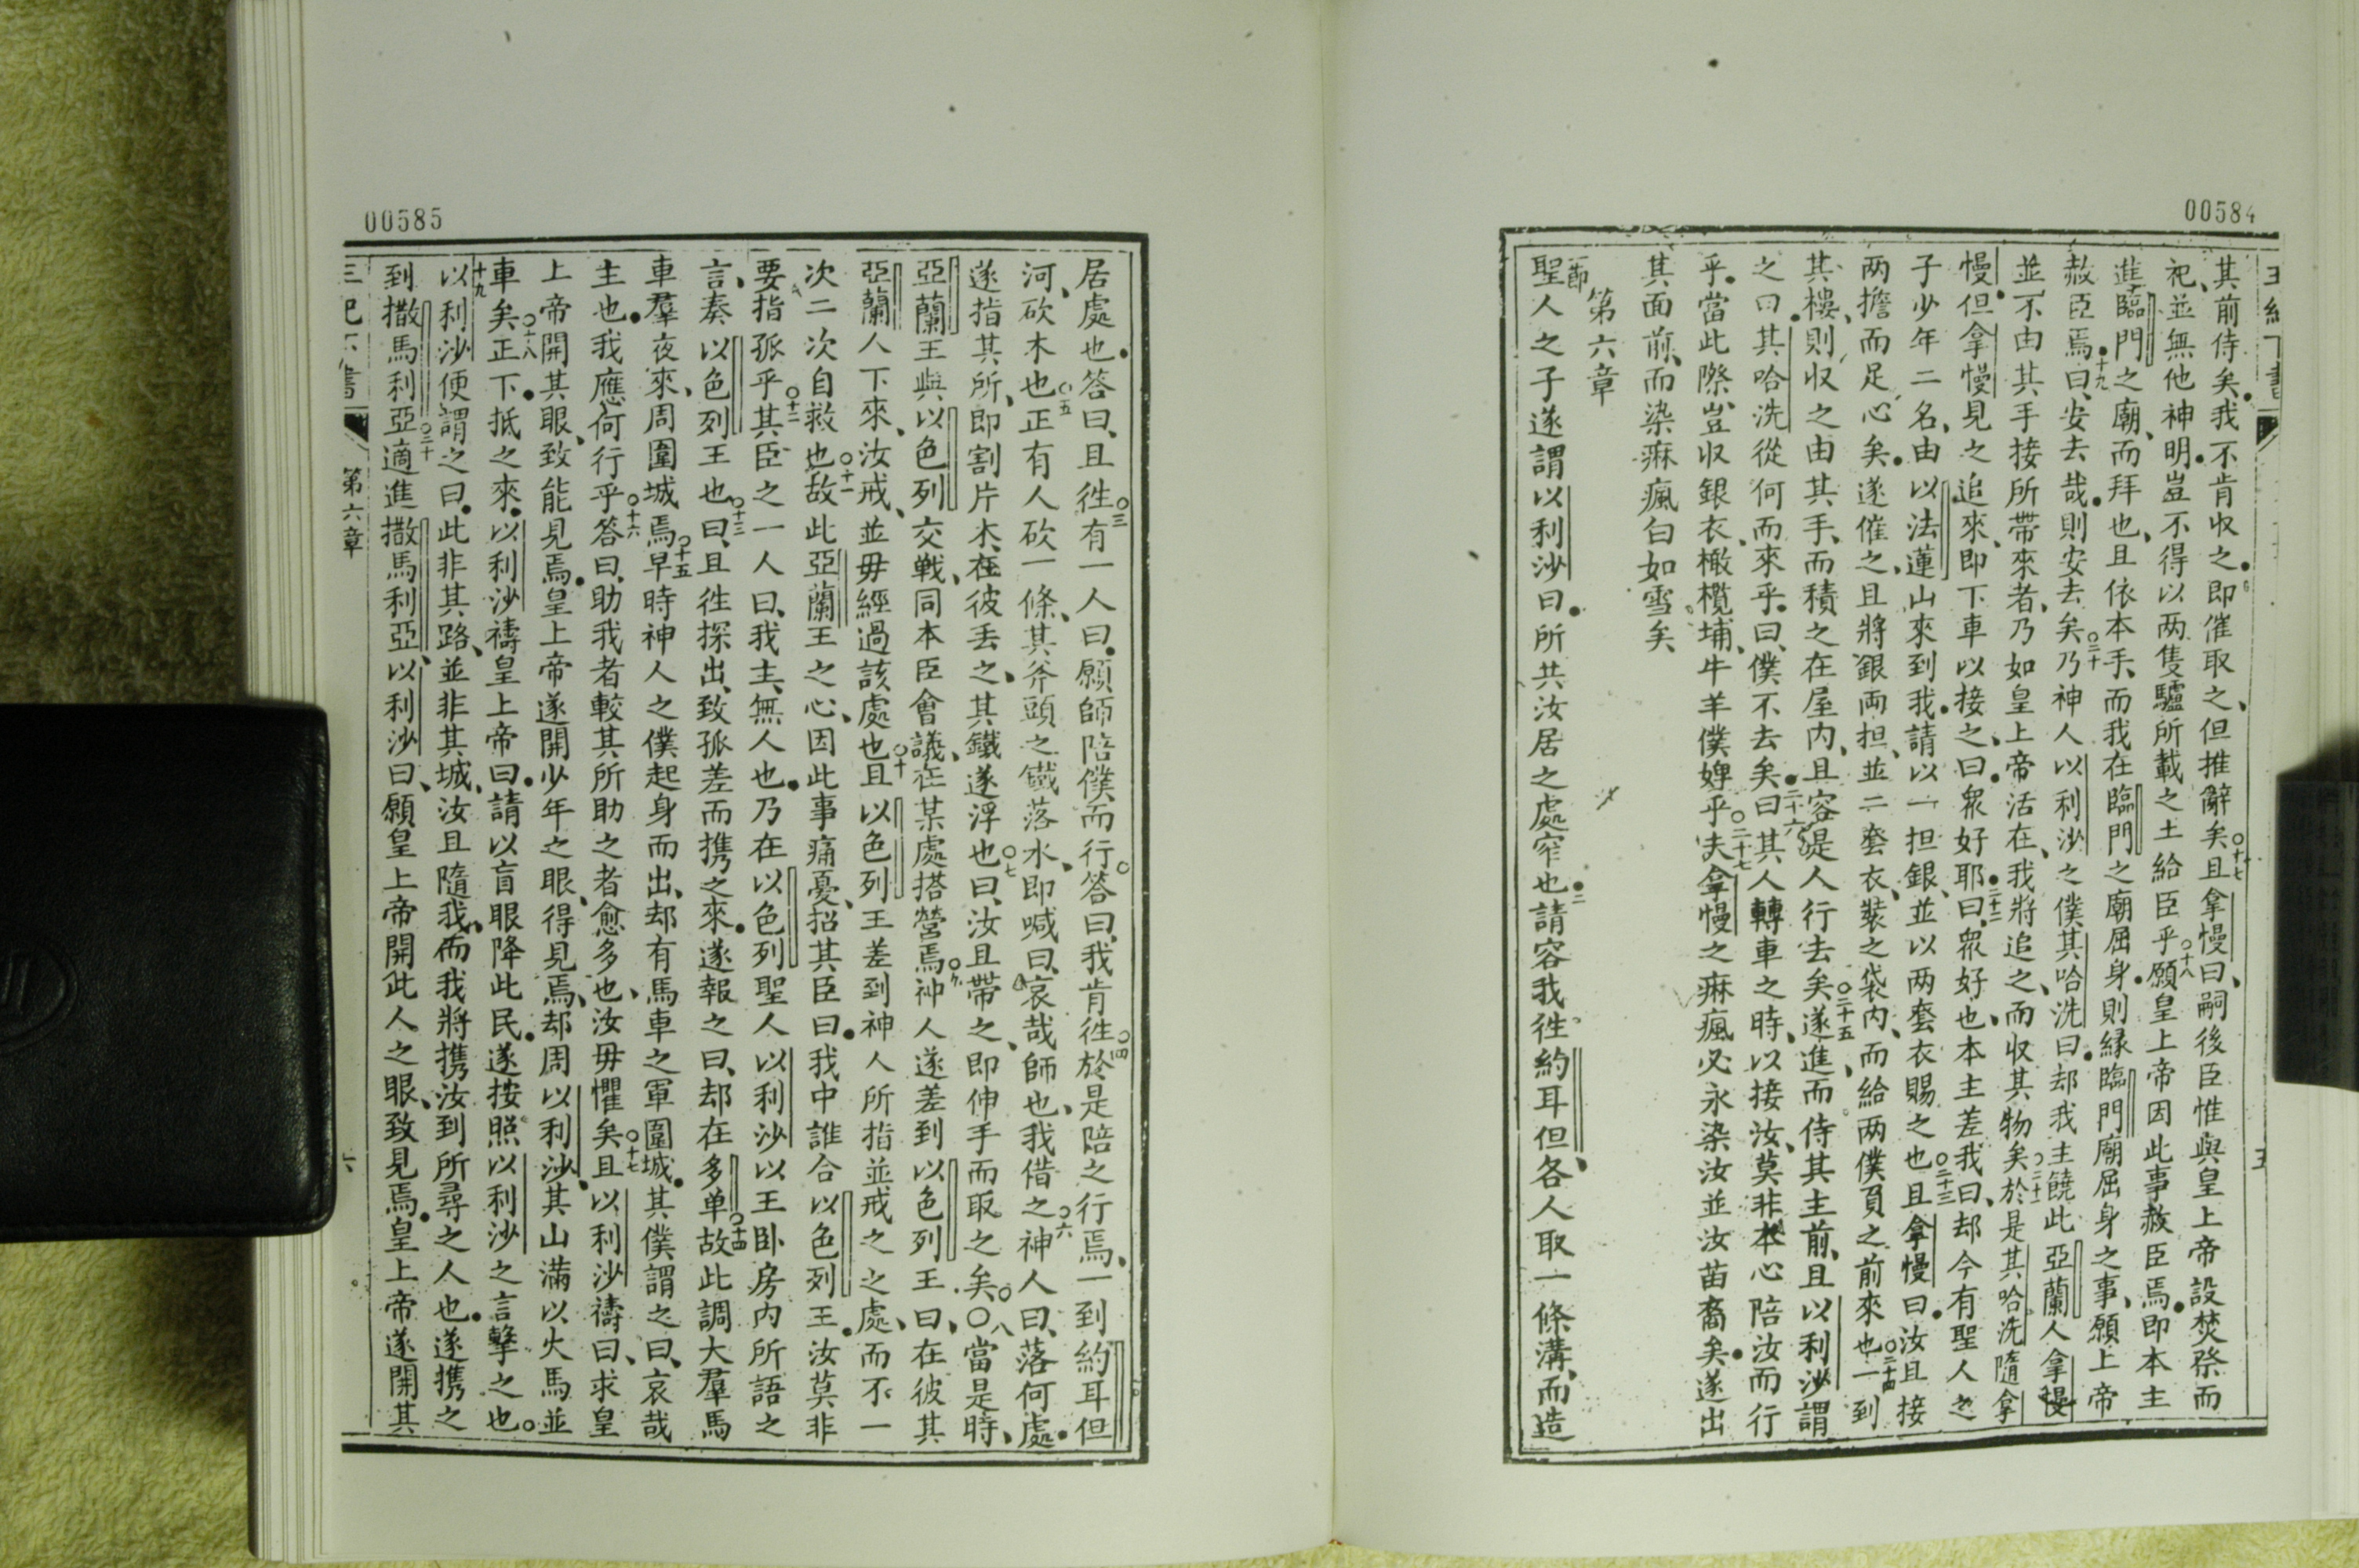 00584
其前侍矣我不肯收之即催取之但推辭矣且拿慢曰嗣後臣惟與皇上帝設焚祭而
祀並無他神明豈不得以两隻驢所載之土給臣乎願皇上帝因此事赦臣焉即本主
進臨門之廟而拜也且依本手而我在臨門之廟屈身則緣臨門廟屈身之事願上帝
赦臣焉曰安去哉則安去矣乃神人以利沙之僕其哈洗曰却我主饒此亞蘭人拿慢
並不由其手接所帶來者乃如皇上帝活在我將追之而收其物矣於是其哈洗隨拿
慢但拿慢見之追來即下車以接之曰衆好耶曰衆好也本主差我曰却今有聖人之
子少年二名由以法蓮山來到我請以一担銀並以两套衣賜之也且拿慢曰汝且接
两擔而足心矣遂催之且將銀両担並二套衣裝之袋内而給两僕負之前來也一到
其樓則收之由其手而積之在屋内且容是人行去矣遂進而侍其主前且以利沙謂
之曰其哈洗從何而來乎曰僕不去矣曰其人轉車之時以接汝莫非本心陪汝而行
乎當此際豈收銀衣橄欖埔牛羊僕婢乎夫拿慢之痳瘋必永染汝並汝苗裔矣遂出
其面前而染痳瘋白如雪矣
第六章
聖人之子遂謂以利沙曰所共汝居之處窄也請容我徃約耳但各人取一條溝而造
00585
居處也答曰且徃有一人曰願師陪僕而行答曰我肯徃於是陪之行焉一到約耳但
河砍木也正有人砍一條其斧頭之鐵落水即喊曰哀哉師也我借之神人曰落何處
遂指其所即割片木在彼丢之其鐵遂浮也曰汝且帶之即伸手而取之矣〇當是時
亞蘭王與以色列交戰同本臣會議在某處搭營焉神人遂差到以色列王曰在彼其
亞蘭人下來汝戒並毋經過該處也且以色列王差到神人所指並戒之之處而不一
次二次自救也故此亞蘭王之心因此事痛憂招其臣曰我中誰合以色列王汝莫非
要指孤乎其臣之一人曰我主無人也乃在以色列聖人以利沙以王卧房内所語之
言奏以色列王也曰且徃探出致孤差而携之來遂報之曰却在多单故此調大羣馬
車羣夜來周圍城焉早時神人之僕起身而出却有馬車之軍圍城其僕謂之曰哀哉
主也我應何行乎答曰助我者較其所助之者愈多也汝毋懼矣且以利沙禱曰求皇
上帝開其眼致能見焉皇上帝遂開少年之眼得見焉却周以利沙其山滿以火馬並
車矣正下抵之來以利沙禱皇上帝曰請以盲眼降此民遂按照以利沙之言擊之也
以利沙便謂之曰此非其路並非其城汝且隨我而我將携汝到所尋之人也遂携之
到撒馬利亞適進撒馬利亞以利沙曰願皇上帝開此人之眼致見焉皇上帝遂開其
第六章